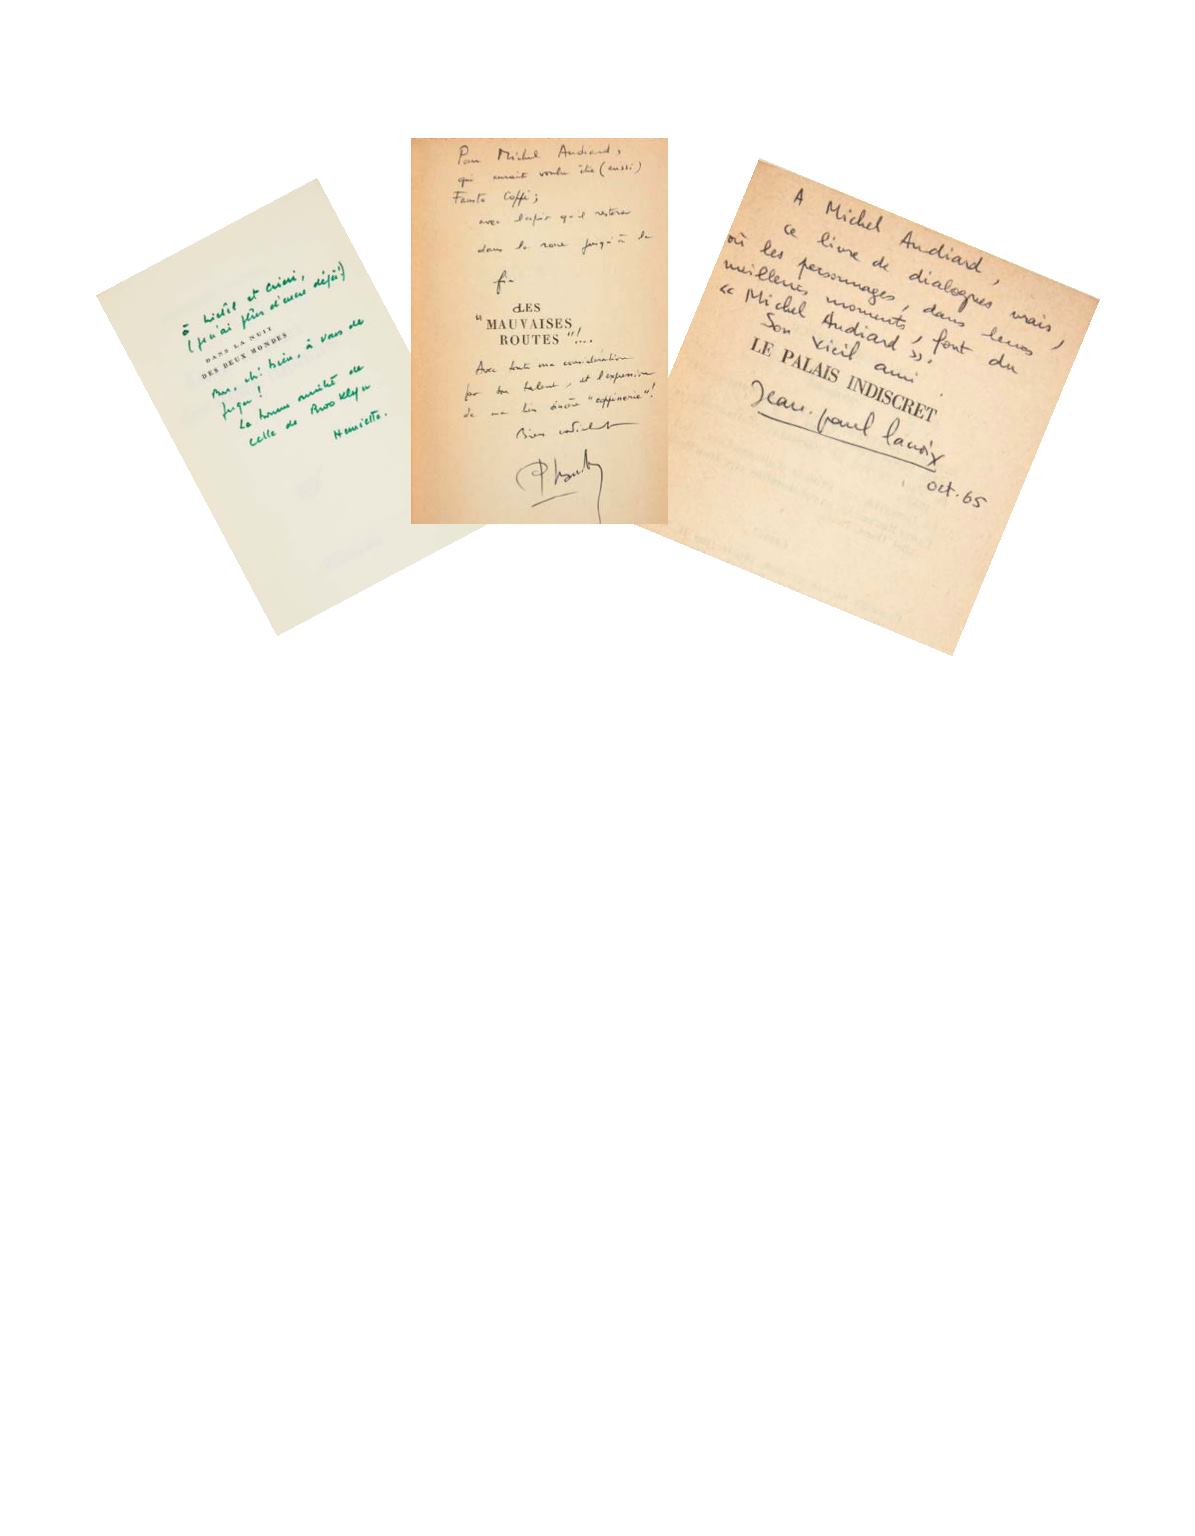 à Michel et
(j'en ai plus d'une déjà!)
DANS LA NUIT
DES DEUX MONDES
bien, à vous de
juger!
La bonne amitié de
celle de Brooklyn
Henriette.
Pour Michel Audiard,
qui aurait voulu être (aussi)
Fausto Coppi;
avec l'espoir qu'il restera
dans la roue jusqu'à la
fin
dLES
"MAUVAISES
ROUTES"!...
Avec toute ma considération
pour son talent, et l'expression
de ma très sincère "coppinerie"!
Bien cordialement
A Michel Audiard,
ce livre de dialogues vrais,
où les personnages, dans leurs
meilleurs moments, font du
« Michel Audiard »!
Son vieil ami
LE PALAIS INDISCRET
Jean-Paul Lacroix
oct. 65